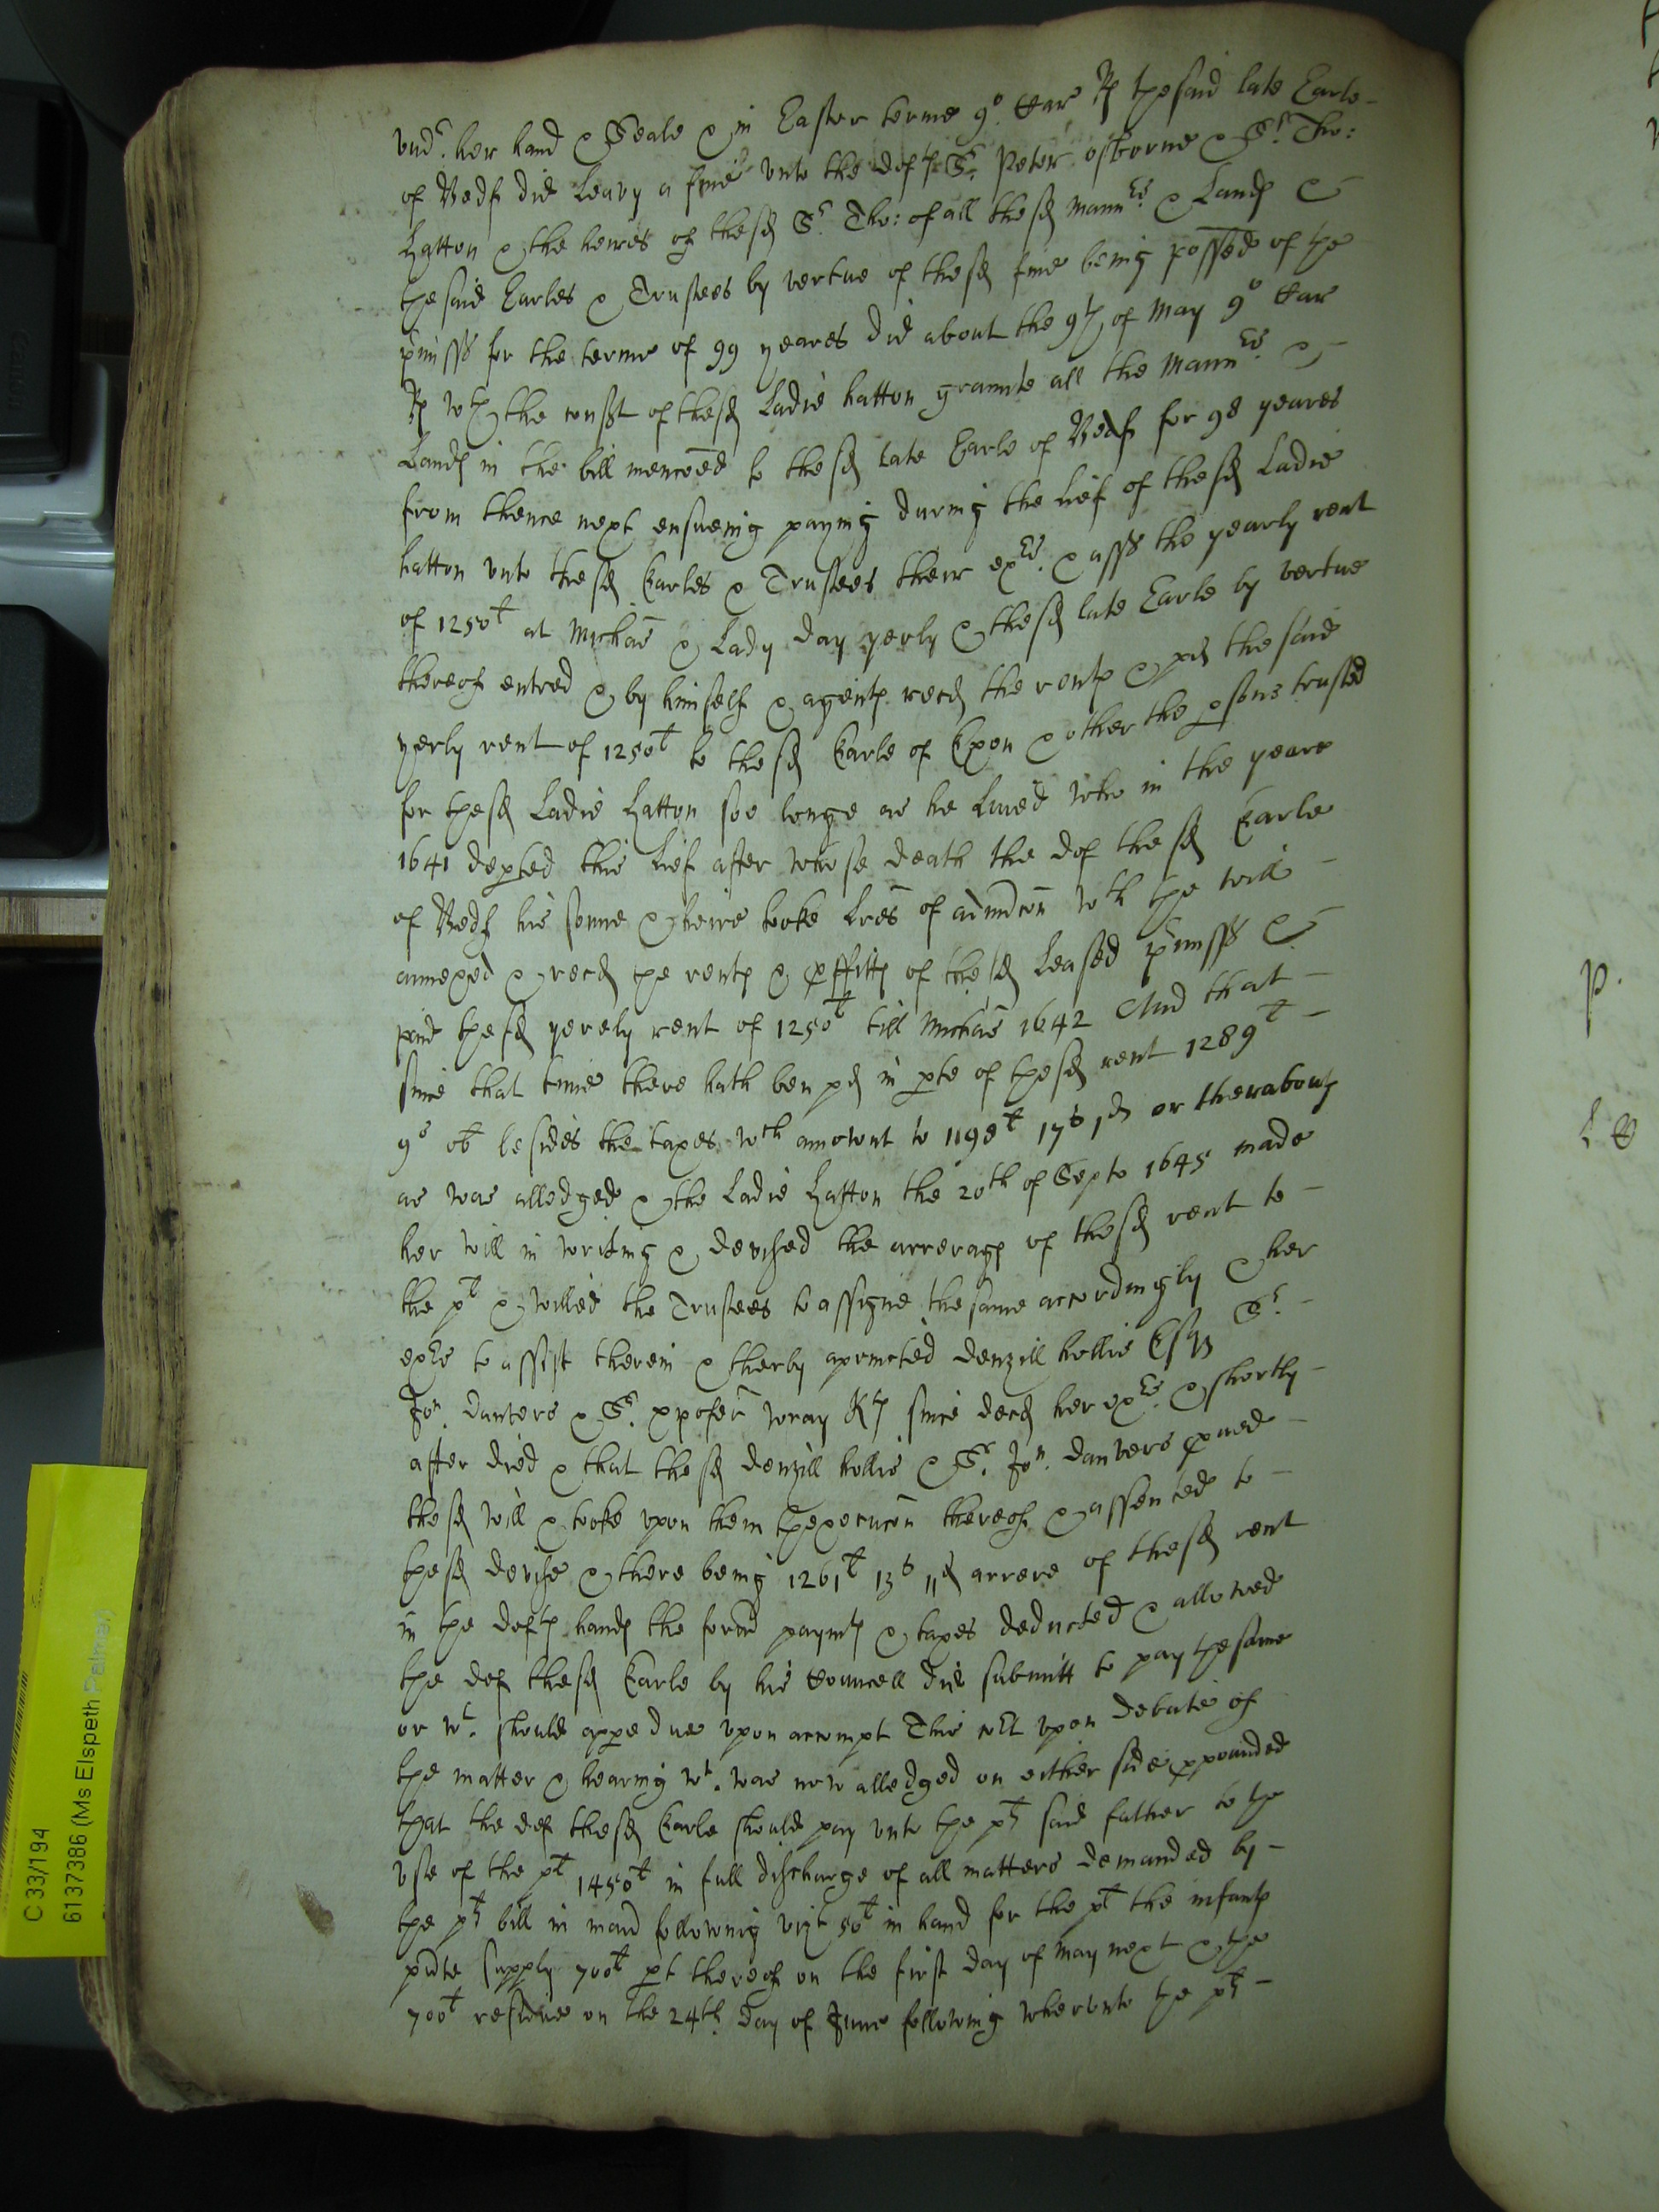 vndr. her hand & Seale & in Easter terme 9o. Car R the said late Earle
of Bedf did leavy a fine vnto the deftes Sr. Peter osborne & Sr. Tho:
Hatton & the heires of the sd Sr. Tho: of all the sd Mannrs. & Lands &
the said Earles & Trustees by vertue of the sd fine being possed of the
pmisss for the terme of 99 yeares did about the 9th of May 9o Car
R wth the consst of the sd Ladie hatton grannte all the Mannrs. &
Lands in the bill mencoed to the sd late Earle of Bedf for 98 yeares
from thence next ensueing paying during the lief of the sd Ladie
hatton vnto the sd Earles & Trustees their exrs. & asss the yearly rent
of 1250l at Michas & Lady day yerly & the sd late Earle by vertue
thereof entred & by himself & agents recd the rents & pd the said
yerly rent of 1250l to the sd Earle of Exon & other the psons trusted
for the sd Ladie Hatton soe longe as he lived who in the yeare
1641 depted this lief after whose death the def the sd Earle
of Bedf his sonne & heire tooke lres of admcon wth the will
annexed & recd the rents & pffitts of the sd Leased pmisss &
paid the sd yerely rent of 1250l till Michas 1642 And that
since that time there hath ben pd in pte of the sd rent 1289l
9s ob besides the taxes wch amount to 1198l 17s 1d or therabouts
as was alledged & the Ladie Hatton the 20th of Septr 1645 made
her will in writing & devised the arrerags of the sd rent to
the plt & willed the Trustees to assigne the same accordingly & her
exrs to assist therein & therby apointed denzill hollis Esqr Sr.
Jon. danvers & Sr. xpofer wray Kts since decd her exrs. & shortly
after died & that the sd denzill hollis & Sr. Jon. danvers pved
the sd will & tooke vpon them thexecucon thereof & assented to
the sd devise & there being 1261l 13s 11d arrere of the sd rent
in the defts hands the forsd paymts & taxes deducted & allowed
the def the sd Earle by his Councell did submitt to pay the same
or wt. should appe due vpon accompt This Crt vpon debate of
the matter & hearing wt. was now alledged on either side ppounded
that the def the sd Earle should pay vnto the plts said father to the
vse of the plt 1450l in full discharge of all matters demanded by
the plts bill in mann following vizt 50l in hand for the plt the infants
pnte supply 700l pt thereof on the first day of May next & the
700l residue on the 24th day of June following whervnto the plts
p.
C 33/194
61737386 (Ms Elspeth Palmer)